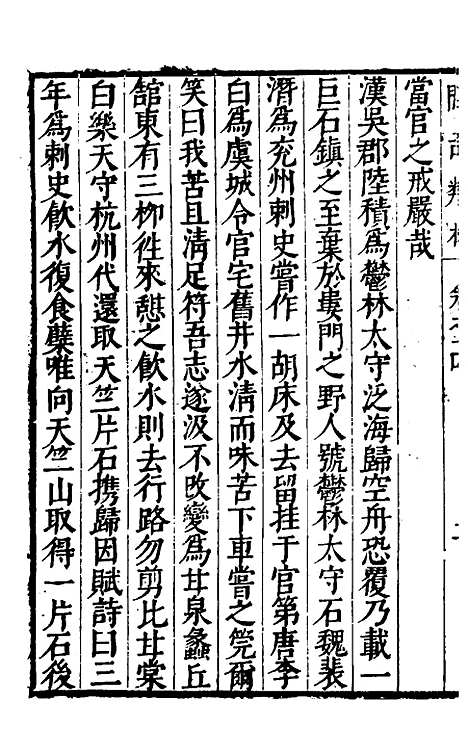 當官之戒嚴哉
漢吳郡陸積爲鬱林太守泛海歸空舟恐覆乃載一
巨石鎮之至棄於婁門之野人號鬱林太守石魏裴
潛爲兖州刺史嘗作一胡床及去留挂于官第唐李
白爲虞城令官宅舊井水清而味苦下車嘗之筦爾
笑曰我苦且清足符吾志遂汲不改變爲甘泉蠡丘
舘東有三柳徃來憇之飲水則去行路勿剪比甘棠
白樂天守杭州代還取天竺片石携歸因賦詩曰三
年爲刺史飲水復食蘗唯向天竺山取得一片石後